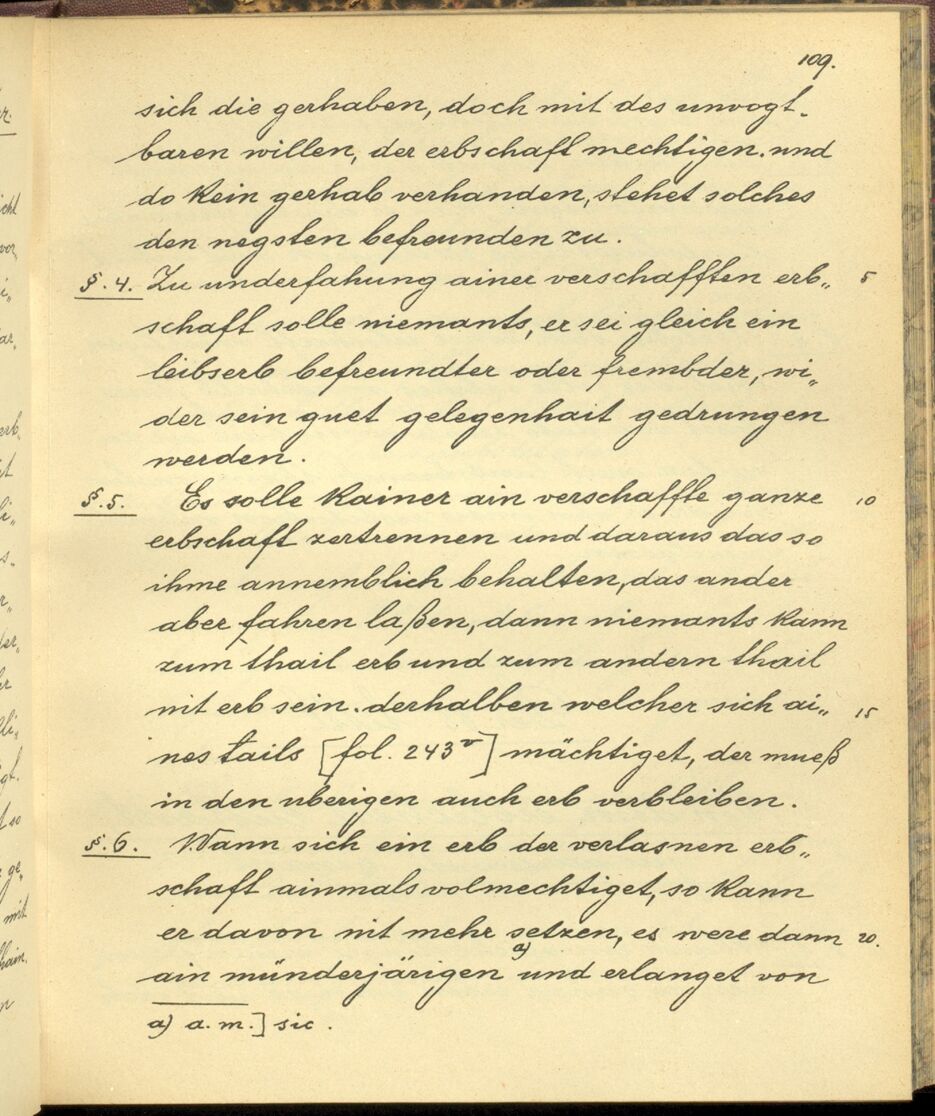 109.
sich die gerhaben, doch mit des unvogt-
baren willen, der erbschaft mechtigen. und
do kein gerhab verhanden, stehet solches
den negsten befreunden zu.
§. 4. Zu underfahung ainer verschafften erb„ 5
schaft solle niemants, er sei gleich ein
leibserb befreundter oder frembder, wi„
der sein guet gelegenhait gedrungen
werden.
§. 5. Es solle kainer ain verschaffte ganze 10
erbschaft zertrennen und daraus das so
ihme annemblich behalten, das ander
aber fahren laßen, dann niemants kann
zum thail erb und zum andern thail
nit erb sein. derhalben welcher sich ai„ 15
nes tails [fol. 243v] mächtiget, der mueß
in den uberigen auch erb verbleiben.
§. 6. Wann sich ein erb der verlasnen erb„
schaft ainmals volmechtiget, so kann
er davon nit mehr setzen, es were dann 20.
ain münderjärigen a) und erlanget von
a) a. m.] sic.